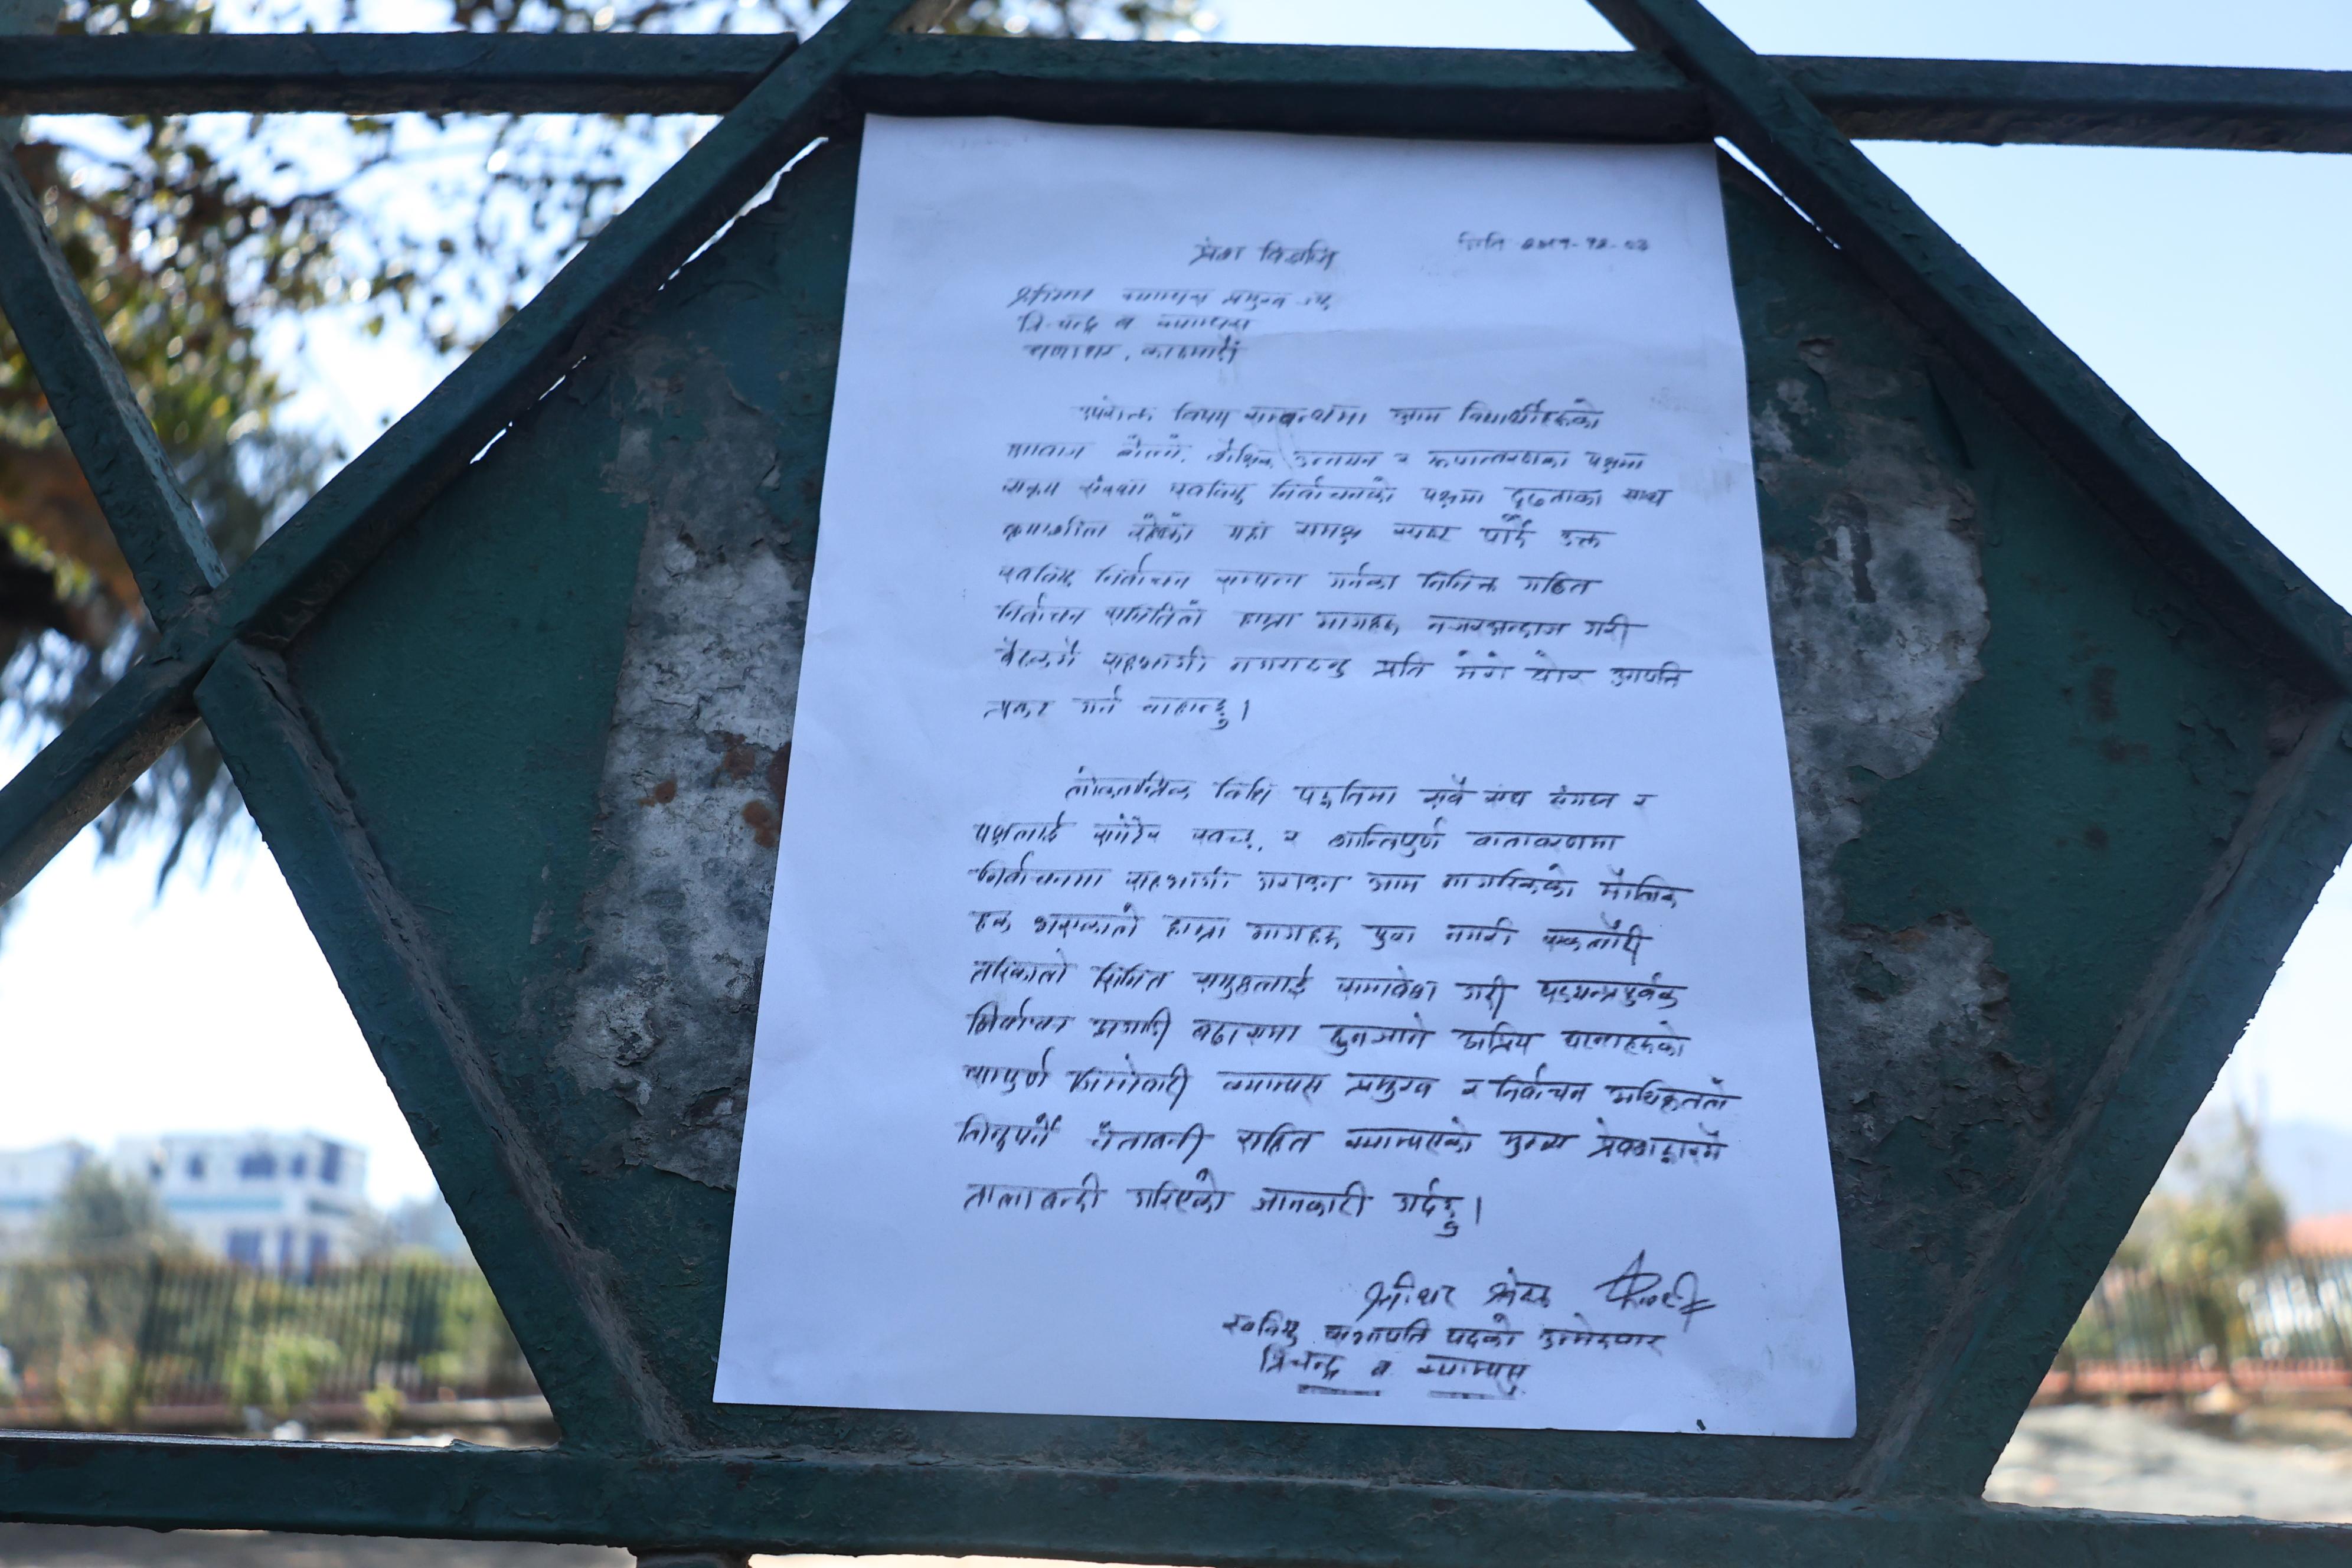 प्रेस विज्ञप्ति
मिति
श्रीमान क्याम्पस प्रमुख ज्यू
त्रि-चन्द्र ब क्याम्पस
घण्टाघर, काठमाडौं
उपरोक्त विषय सम्बन्धमा आम विद्यार्थीहरुको
आवाज बोल्ने, शैक्षिक उन्नयन र रुपान्तरणका पक्षमा
स्ववियु निर्वाचनको पक्षमा दृढताका साथ
क्रियाशील रहेको यहाँ समक्ष स्पष्ट पार्दै उक्त
स्ववियु निर्वाचन सम्पन्न गर्नका निमित्त गठित
निर्वाचन समितिले हाम्रा मागहरु नजरअन्दाज गरी
सहभागी नगराउनु प्रति मेरो घोर आपत्ति
प्रकट गर्न चाहान्छु।
लोकतान्त्रिक विधि पद्धतिमा सबै संघ संगठन र
पक्षलाई समेटेर स्वच्छ, र शान्तिपुर्ण वातावरणमा
निर्वाचनमा सहभागी गराउन आम नागरिकको मौलिक
हक भएकाले हाम्रा मागहरु पुरा नगरी एकलौटी
तरिकाले सिमित समुहलाई समावेश गरी षडयन्त्रपुर्वक
निर्वाचन अगाडी बढाएमा हुनजाने अप्रिय घटनाहरुको
सम्पुर्ण जिम्मेवारी क्याम्पस प्रमुख र निर्वाचन अधिकृतले
लिनुपर्ने चेतावनी सहित क्याम्पसको मुख्य प्रवेशद्वारमै
तालाबन्दी गरिएको जानकारी गर्दछु।
स्ववियु सभापति पदको उम्मेदवार
त्रिचन्द्र ब क्याम्पस